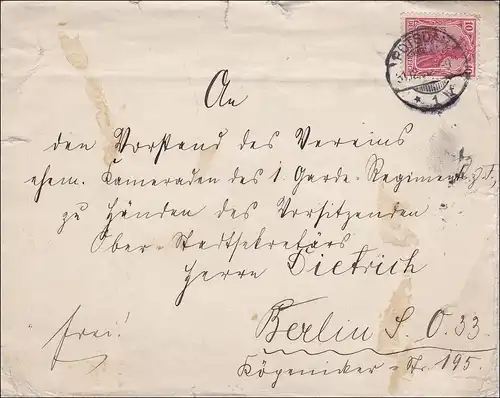 10
POTSDAM
* 1 k
An
den Vorstand des Vereins
ehem. Cameraden des 1. Garde-Regiments z. F.
zu Händen des Vorsitzenden
Ober-Stadtsekretärs
Herrn Dietrich
frei!
Berlin S. O. 33.
Köpenicker-Str. 195.